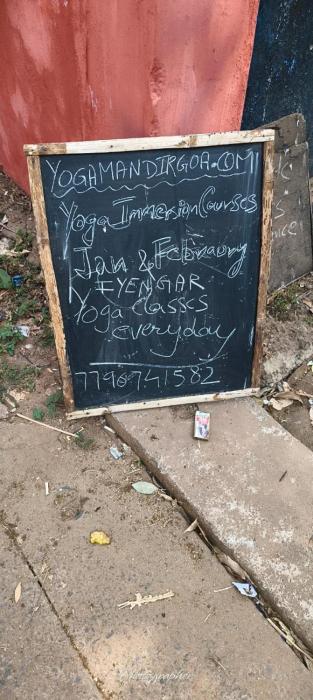 YOGAMANDIRGOA.COM
Yoga Immersion Courses
Jan & February
IYENGAR
Yoga Classes
everyday
7796741582